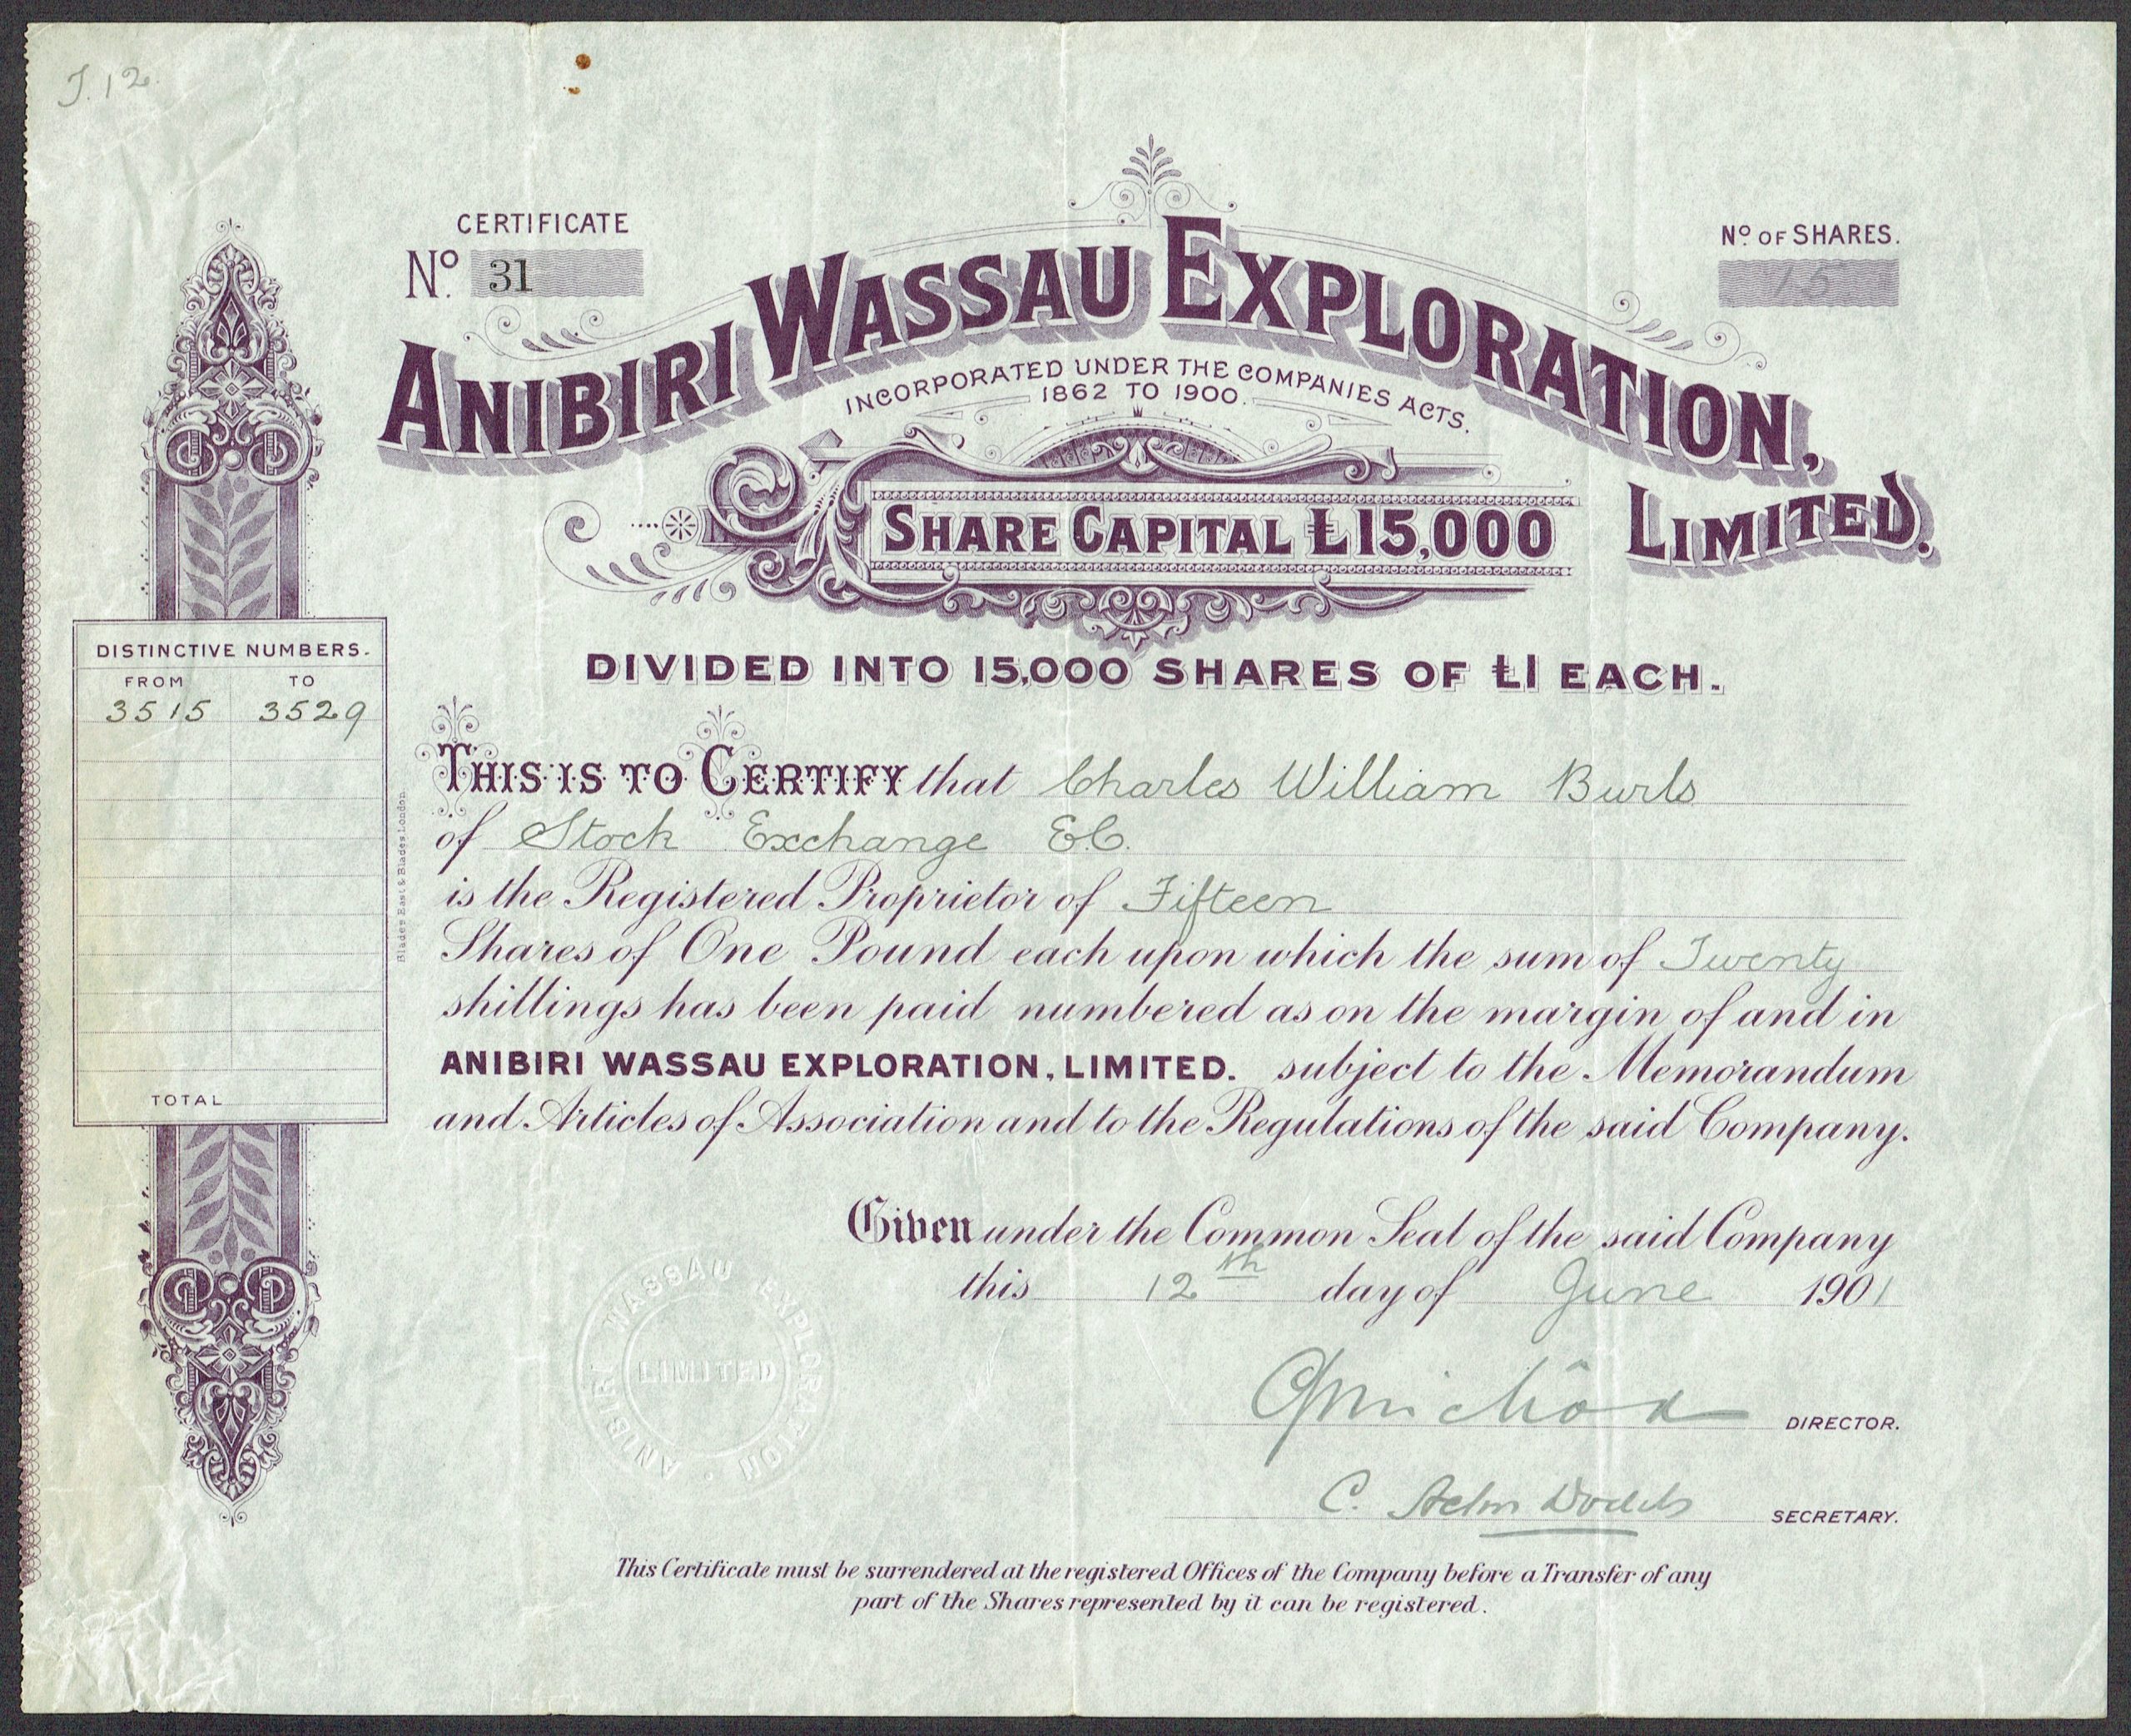 J.12.
CERTIFICATE
No. 31
No. OF SHARES.
15
ANIBIRI WASSAU EXPLORATION, LIMITED.
INCORPORATED UNDER THE COMPANIES ACTS.
1862 TO 1900.
SHARE CAPITAL £15,000
DIVIDED INTO 15,000 SHARES OF £1 EACH.
DISTINCTIVE NUMBERS.
FROM TO
3515 3529
TOTAL
Blades East & Blades London
THIS IS TO CERTIFY that Charles William Burls
of Stock Exchange E.C.
is the Registered Proprietor of Fifteen
Shares of One Pound each upon which the sum of Twenty
shillings has been paid numbered as on the margin of and in
ANIBIRI WASSAU EXPLORATION, LIMITED. subject to the Memorandum
and Articles of Association and to the Regulations of the said Company.
Given under the Common Seal of the said Company
this 12th day of June 1901
DIRECTOR.
C. Acton Dodds
SECRETARY.
ANIBIRI WASSAU EXPLORATION
LIMITED
This Certificate must be surrendered at the registered Offices of the Company before a Transfer of any
part of the Shares represented by it can be registered.